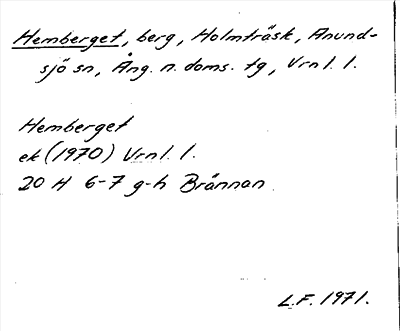 Hemberget, berg, Holmträsk, Anund-
sjö sn, Ång. n. doms. tg, Vrnl. l.
Hemberget
ek (1970) Vrnl. l.
20 H 6-7 g-h Brännan
L.F. 1971.